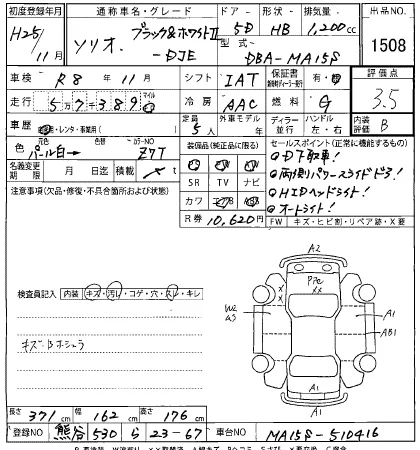 初度登録年月 通称車名・グレード ドア・形状 排気量 出品NO.
H25/11月 ソリオ. ブラック&ホワイトII -DJE 5D HB 1,200cc 1508
型式 DBA-MA15S
車検 R8年11月 シフト IAT 保証書 有・無 評価点
走行 57,389 マイル 冷房 AAC 燃料 G 3.5
車歴 自家・レンタ・事業用( ) 定員 5人 外車モデル 年 ディーラー 並行 ハンドル 左・右 内装評価 B
色 元色 パール白→ 色替 カラーNO Z7T 装備品(純正品に限る) セールスポイント(正常に機能するもの)
名義変更期限 月 日迄 積載 t SR TV ナビ
注意事項(欠品・修復・不具合箇所および状態) カワ
R券 10,620円
D下取車!
両側パワースライドドア!
HIDヘッドライト!
オートライト!
FW キズ・ヒビ割・リペア跡・X要
検査員記入 内装 キズ・汚レ・コゲ・穴・スレ・キレ
キズ・B ホシュラ
A2
PPキ
XX
X
X
W2
A3
A1
A1
BA1
A1
A1
長さ 371cm 幅 162cm 高さ 176cm
登録NO 熊谷 530 ら 23-67 車台NO MA15S-510416